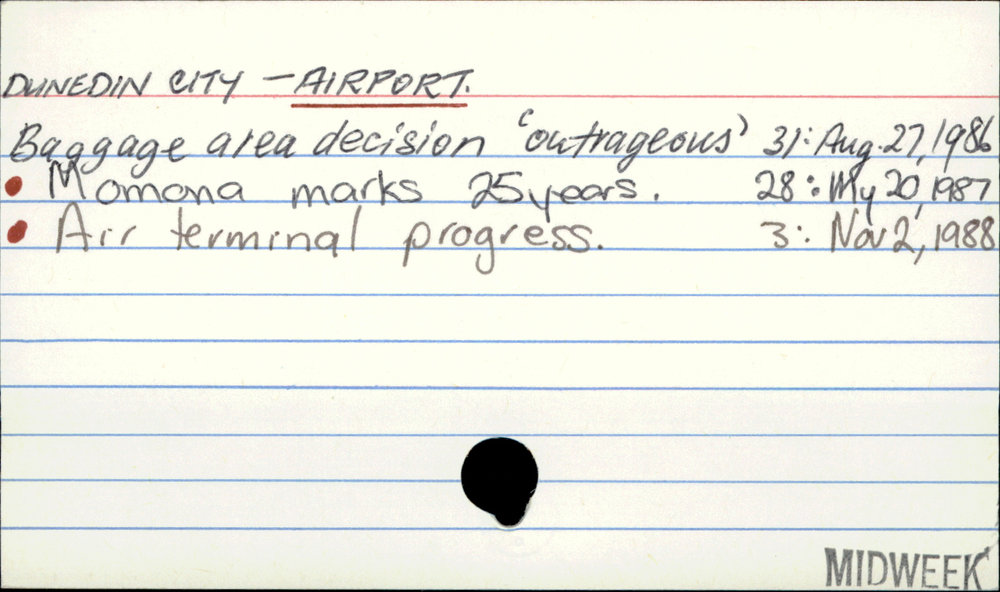 DUNEDIN CITY — AIRPORT.
Baggage area decision ‘outrageous’ 31: Aug. 27, 1986
• Momona marks 25 years. 28: My 20, 1987
• Air terminal progress. 3: Nov 2, 1988
MIDWEEK